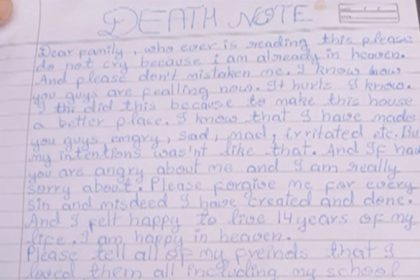 DEATH NOTE
Dear family, who ever is reading this please
do not cry because i am already in heaven.
And please don't mistaken me. I know how
you guys are fealling now. It hurls I know.
I did this because to make this house
a better place. I know that I have made
you guys angry, sad, mad, irritated etc. But
my intentions was'nt like that. And If had
you are angry about me and I am really
sorry about. Please forgive me for every
sin and misdeed I have created and done.
And I felt happy to live 14 years of my
life. I am happy in heaven.
Please tell all of my freinds that I
loved them all including my school